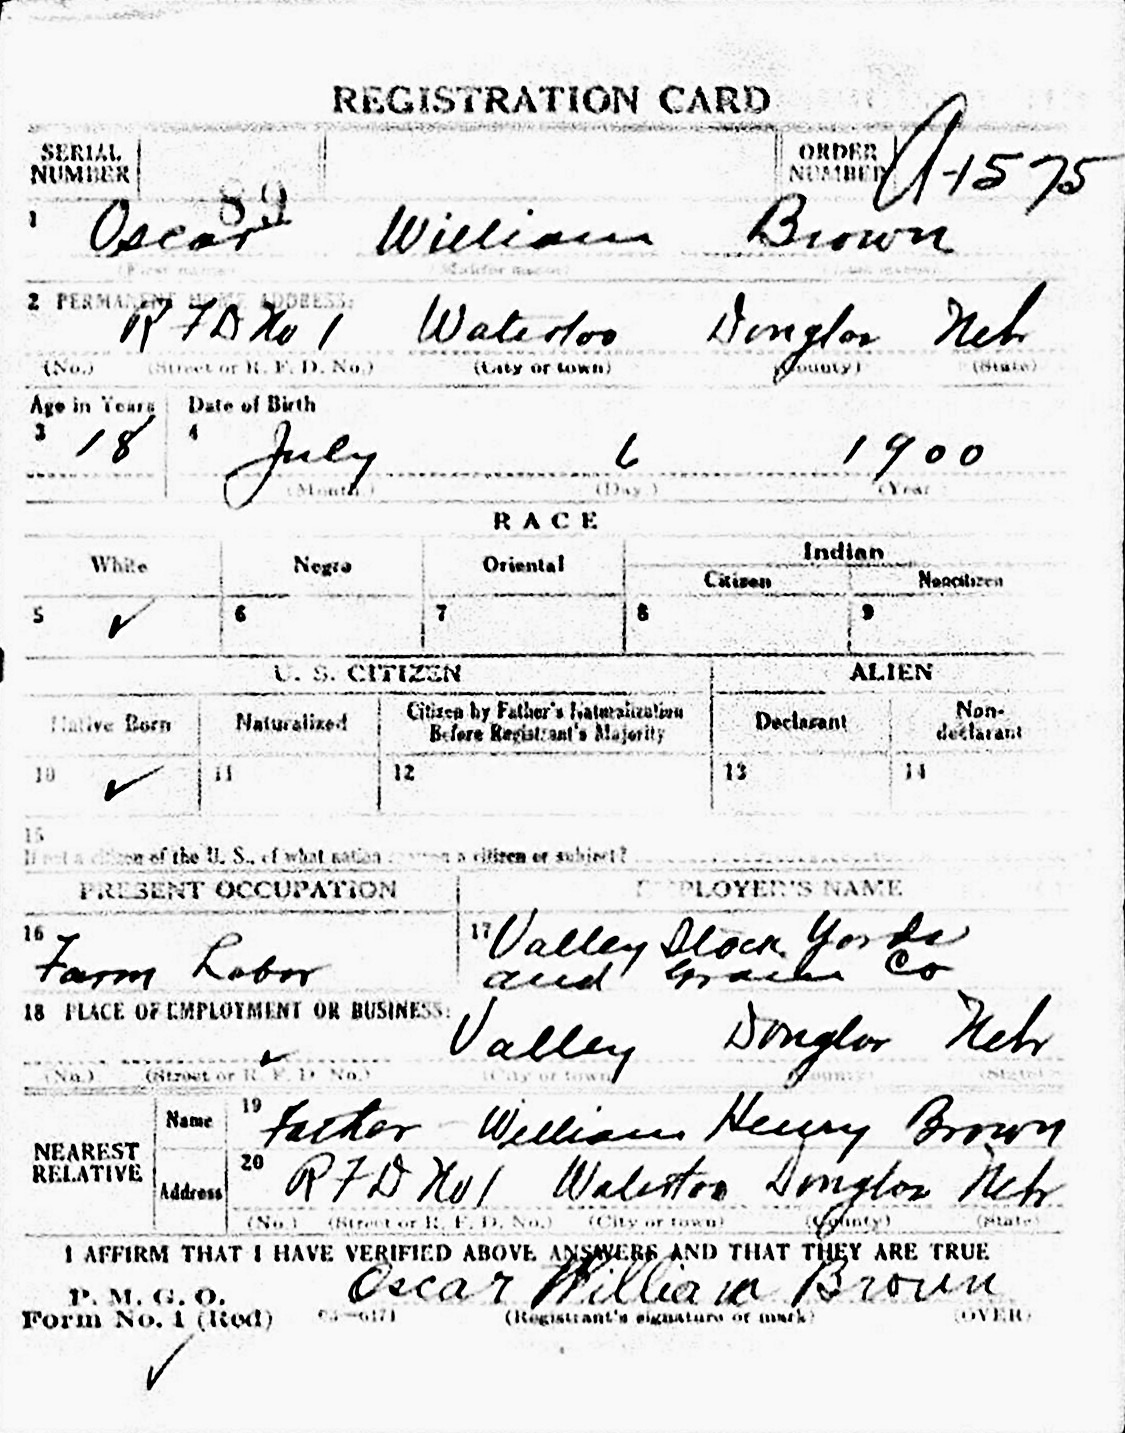 REGISTRATION CARD
SERIAL NUMBER 89 ORDER NUMBER A-1575
1 Oscar William Brown
(First name) (Middle name) (Last name)
2 PERMANENT HOME ADDRESS:
R F D No 1 Waterloo Douglas Nebr
(No.) (Street or R. F. D. No.) (City or town) (County) (State)
Age in Years Date of Birth
3 18 4 July 6 1900
(Month.) (Day.) (Year.)
RACE
White Negro Oriental Indian
Citizen Noncitizen
5 ✓ 6 7 8 9
U. S. CITIZEN ALIEN
Native Born Naturalized Citizen by Father's Naturalization Before Registrant's Majority Declarant Non-declarant
10 ✓ 11 12 13 14
15
If not a citizen of the U. S., of what nation are you a citizen or subject?
PRESENT OCCUPATION EMPLOYER'S NAME
16 Farm Labor 17 Valley Stock Yards
and Grain Co
18 PLACE OF EMPLOYMENT OR BUSINESS:
Valley Douglas Nebr
(No.) (Street or R. F. D. No.) (City or town) (County) (State)
NEAREST RELATIVE
Name 19 Father William Henry Brown
Address 20 R F D No 1 Waterloo Douglas Nebr
(No.) (Street or R. F. D. No.) (City or town) (County) (State)
I AFFIRM THAT I HAVE VERIFIED ABOVE ANSWERS AND THAT THEY ARE TRUE
P. M. G. O. Oscar William Brown
Form No. 1 (Red) (Registrant's signature or mark) (OVER)
✓